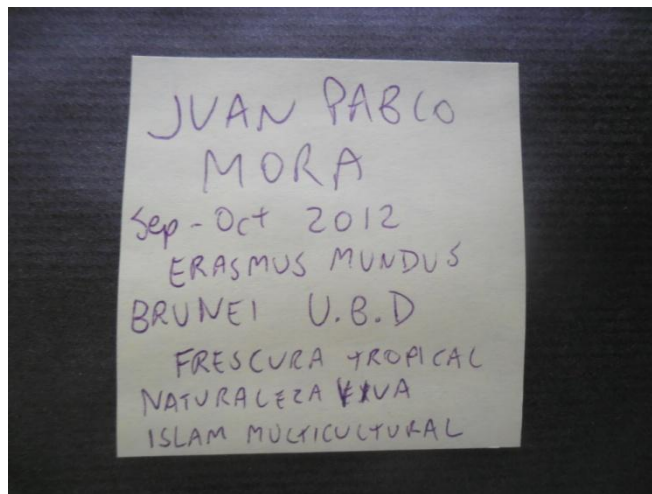 JUAN PABLO
MORA
Sep - Oct 2012
ERASMUS MUNDUS
BRUNEI U.B.D
FRESCURA TROPICAL
NATURALEZA VIVA
ISLAM MULTICULTURAL